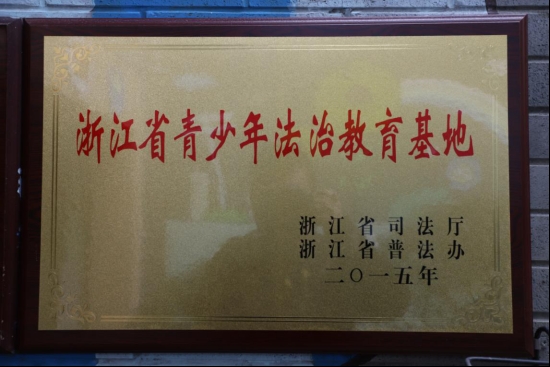 浙江省青少年法治教育基地
浙江省司法厅
浙江省普法办
二〇一五年